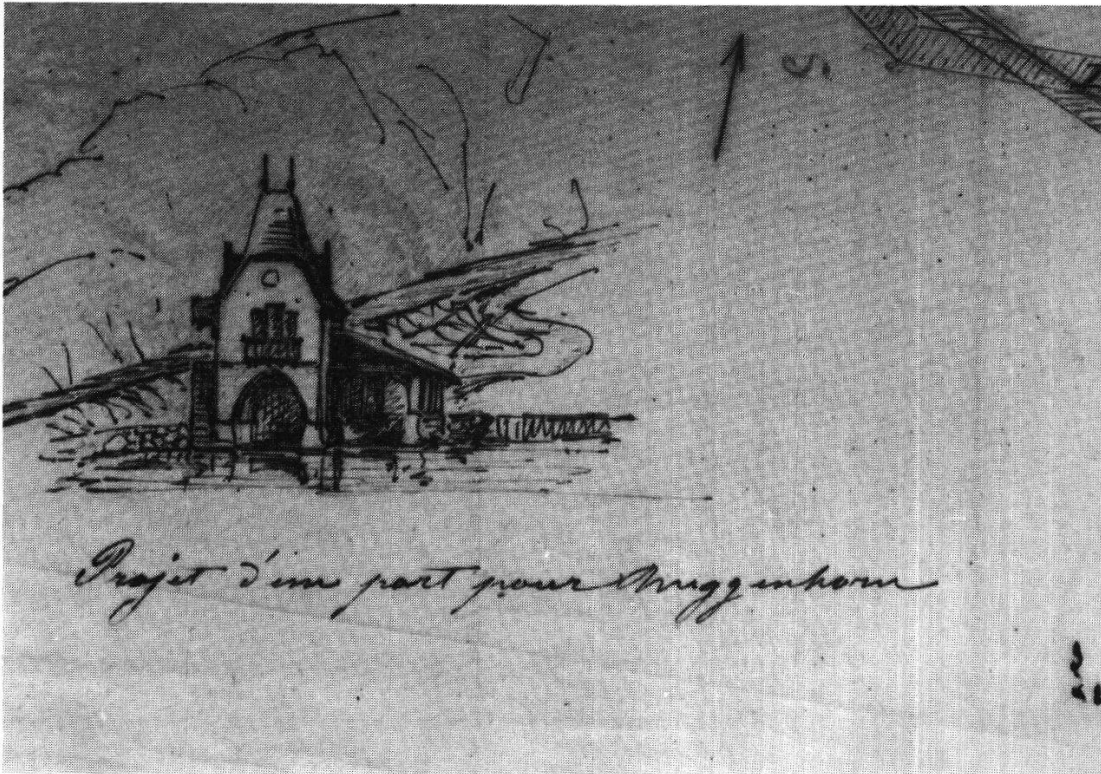 Projet d'un port pour Meggenhorn